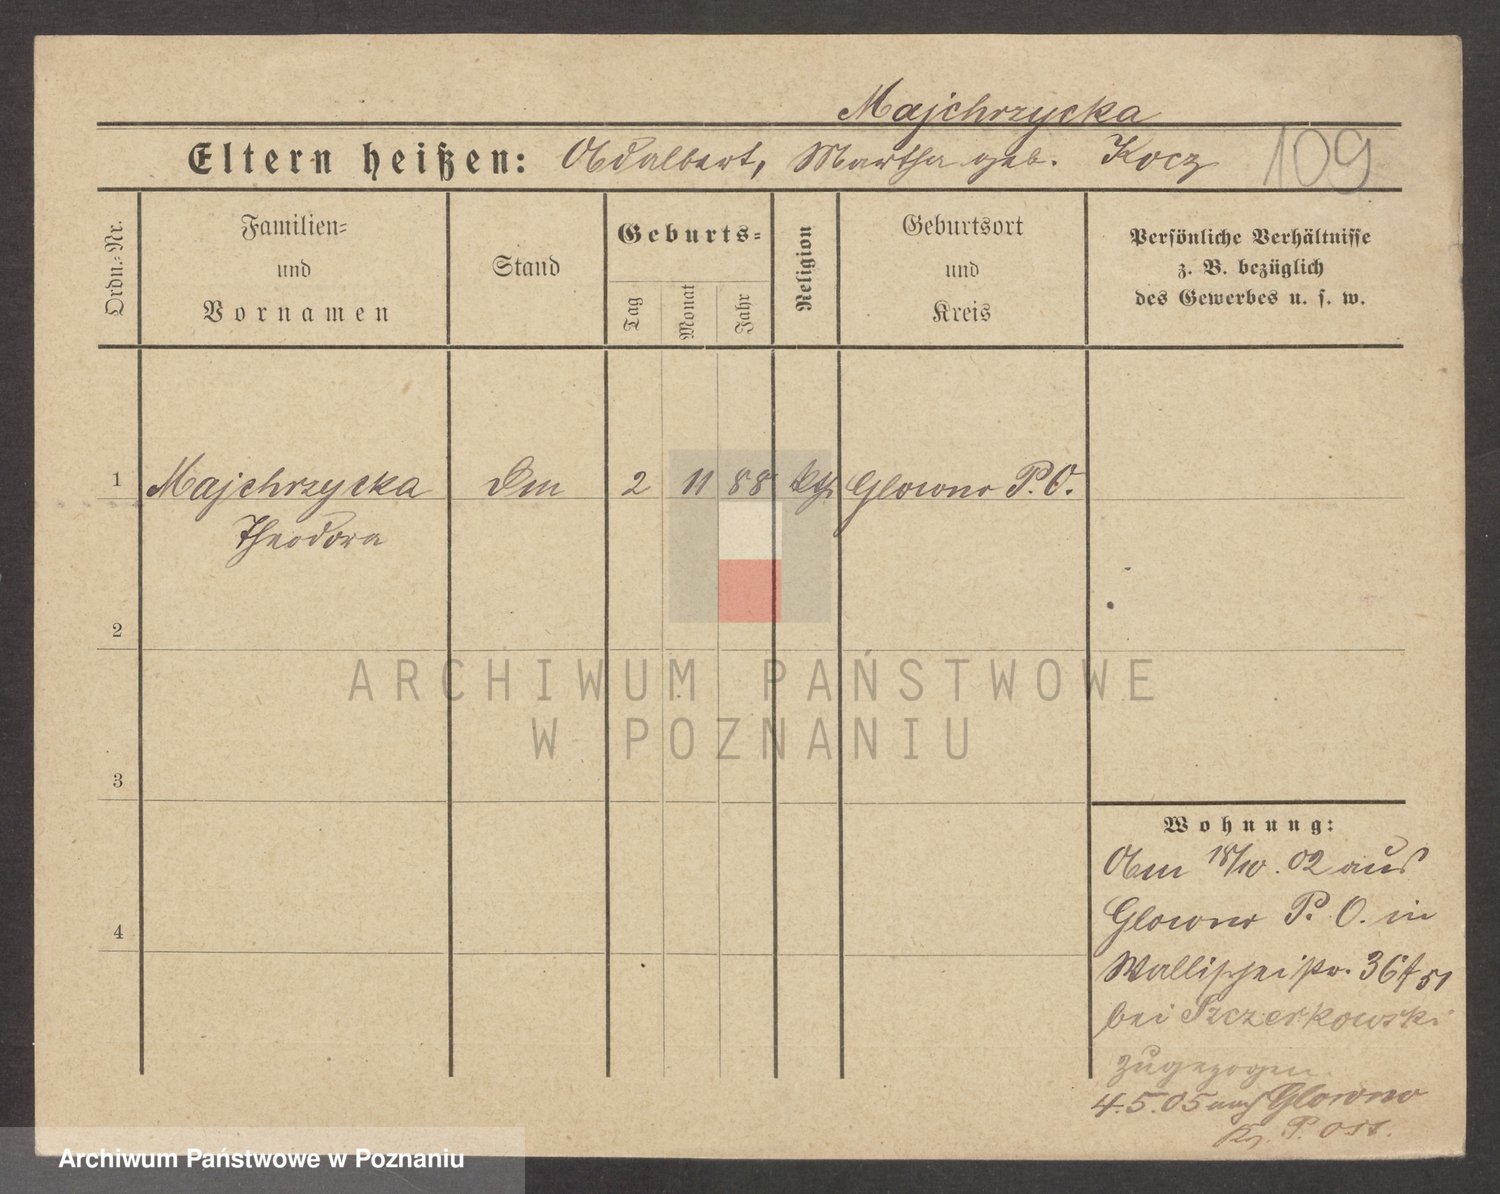 Majchrzycka
Eltern heißen: Adalbert, Martha geb. Kocz 109
Ordn.-Nr.
Familien-
und
Vornamen
Stand
Geburts-
Tag
Monat
Jahr
Religion
Geburtsort
und
Kreis
Persönliche Verhältnisse
z. B. bezüglich
des Gewerbes u. s. w.
1 Majchrzycka 2 11 88 kth Glowno P. O.
Theodora
2
3
4
Wohnung:
Am 15/10. 02 aus
Glowno P. O. in
Wallischeistr. 36/51
bei Szczerkowski
zugezogen.
4.5.05 nach Glowno
Kr. P. Ost.
ARCHIWUM PAŃSTWOWE
W POZNANIU
Archiwum Państwowe w Poznaniu